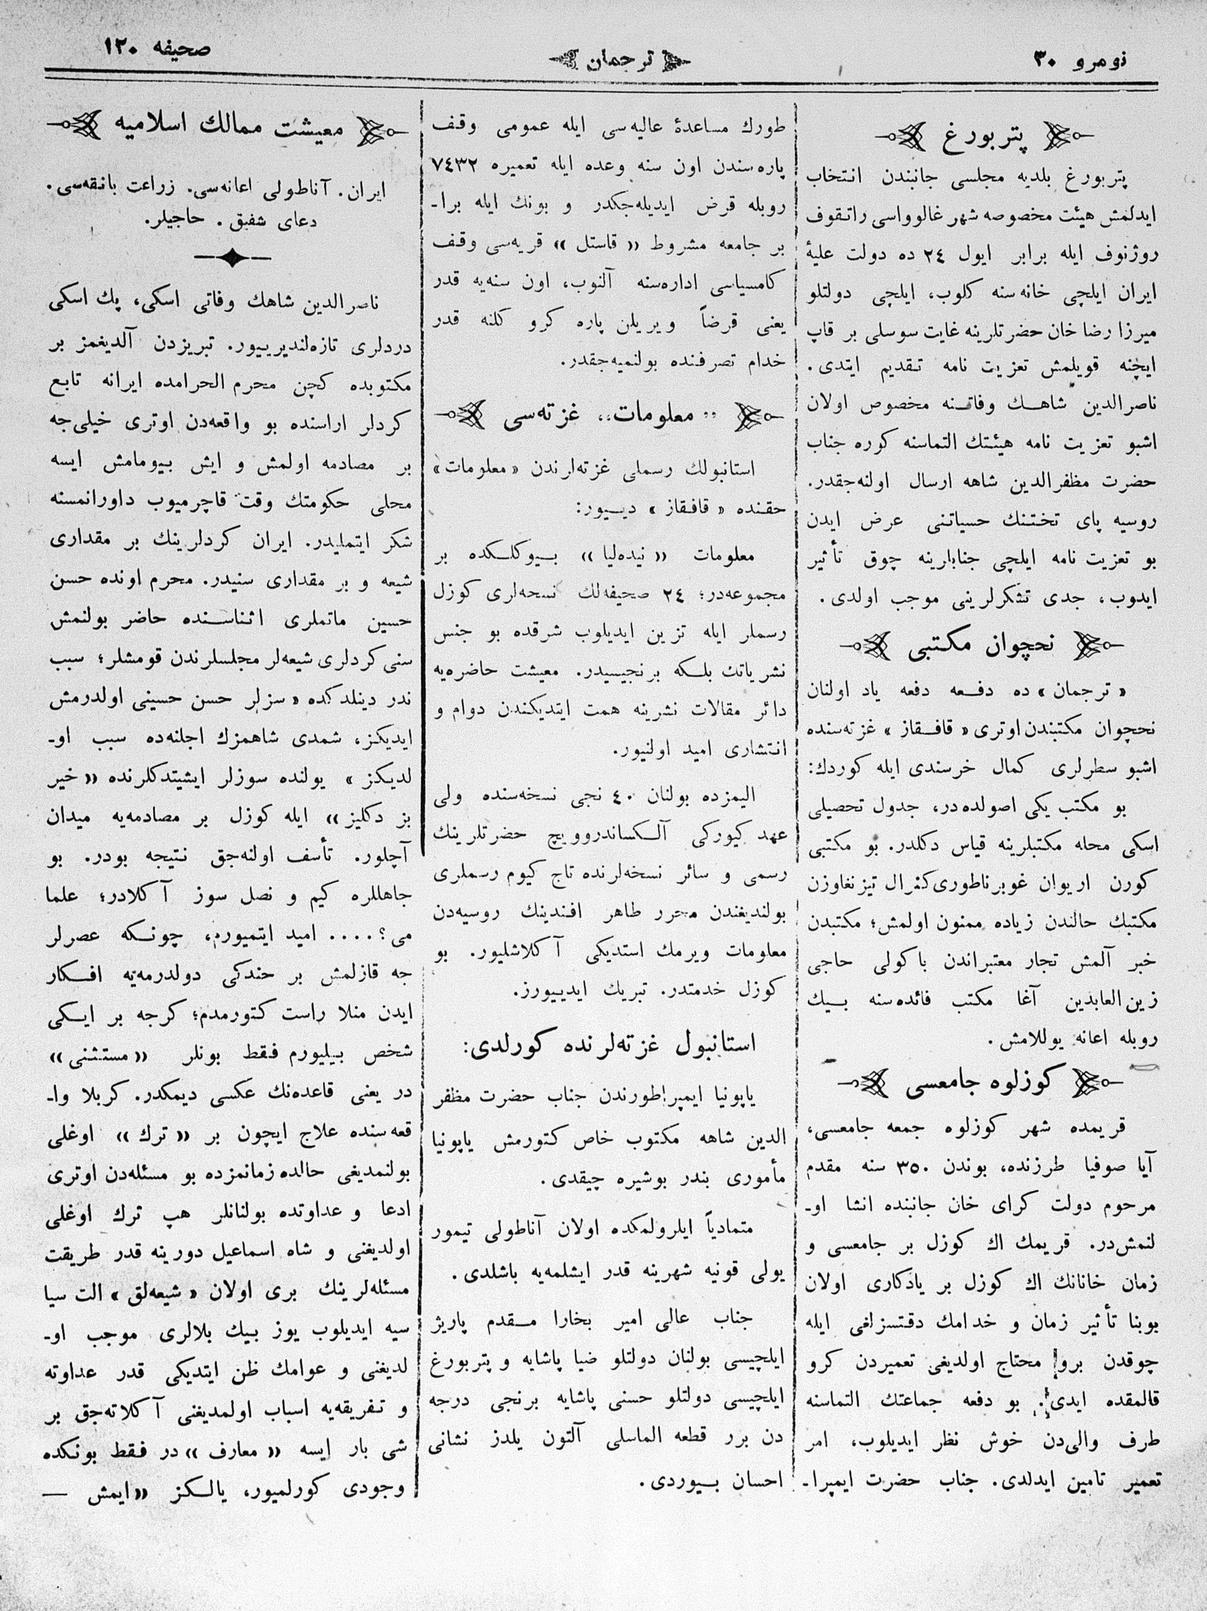 نومرو ٣٠
ترجمان
صحیفه ١٢٠
پتربورغ
پتربورغ بلدیه مجلسی جانبندن انتخاب
ایدلمش هیئت مخصوصه شهر غالوواسی راتقوف
روژنوف ایله برابر ایول ٢٤ ده دولت علیهٔ
ایران ایلچی خانه‌سنه كلوب، ایلچی دولتلو
میرزا رضا خان حضرتلرینه غایت سوسلی بر قاپ
ایچنه قویلمش تعزیت نامه تقدیم ایتدی.
ناصرالدین شاهك وفاتنه مخصوص اولان
اشبو تعزیت نامه هیئتك التماسنه كوره جناب
حضرت مظفرالدین شاهه ارسال اولنه‌جقدر.
روسیه پای تختنك حسیاتنی عرض ایدن
بو تعزیت نامه ایلچی جنابارینه چوق تأثیر
ایدوب، جدی تشكرلرینی موجب اولدی.
نحچوان مكتبی
« ترجمان » ده دفعه دفعه یاد اولنان
نحچوان مكتبندن اوتری « قافقاز » غزته‌سنده
اشبو سطرلری كمال خرسندی ایله كوردك:
بو مكتب یكی اصولده‌در، جدول تحصیلی
اسكی محله مكتبلرینه قیاس دكلدر. بو مكتبی
كورن اریوان غوبرناطوری كنرال تیزنغاوزن
مكتبك حالندن زیاده ممنون اولمش؛ مكتبدن
خبر آلمش تجار معتبراندن باكولی حاجی
زین‌العابدین آغا مكتب فائده‌سنه بیك
روبله اعانه یوللامش.
كوزلوه جامعسی
قریمده شهر كوزلوه جمعه جامعسی،
آیا صوفیا طرزنده، بوندن ٣٥٠ سنه مقدم
مرحوم دولت كرای خان جانبنده انشا او-
لنمش‌در. قریمك اك كوزل بر جامعسی و
زمان خاناتك اك كوزل بر یادكاری اولان
بوبنا تأثیر زمان و خدامك دقتسزلغی ایله
چوقدن برو محتاج اولدیغی تعمیردن كرو
قالمقده ایدی. بو دفعه جماعتك التماسنه
طرف والی‌دن خوش نظر ایدیلوب، امر
تعمیر تامین ایدلدی. جناب حضرت ایمپرا-
طورك مساعدهٔ عالیه‌سی ایله عمومی وقف
پاره‌سندن اون سنه وعده ایله تعمیره ٧٤٣٢
روبله قرض ایدیله‌جكدر و بونك ایله برا-
بر جامعه مشروط « قاستل » قریه‌سی وقف
كامسیاسی اداره‌سنه آلنوب، اون سنه‌یه قدر
یعنی قرضاً ویریلن پاره كرو كلنه قدر
خدام تصرفنده بولنمیه‌جقدر.
« معلومات » غزته‌سی
استانبولك رسملی غزته‌لرندن « معلومات »
حقنده « قافقاز » دیـیور:
معلومات « نیده‌لیا » بیوكلكده بر
مجموعه‌در؛ ٢٤ صحیفه‌لك نسخه‌لری كوزل
رسملر ایله تزین ایدیلوب شرقده بو جنس
نشریاتك بلكه برنجیسیدر. معیشت حاضره‌یه
دائر مقالات نشرینه همت ایتدیكندن دوام و
انتشاری امید اولنیور.
الیمزده بولنان ٤٠ نجی نسخه‌سنده ولی
عهد كیوركی آلكساندروویچ حضرتلرینك
رسمی و سائر نسخه‌لرنده تاج كیوم رسملری
بولندیغندن محرر طاهر افندینك روسیه‌دن
معلومات ویرمك استدیكی آكلاشلیور. بو
كوزل خدمتدر. تبریك ایدییورز.
استانبول غزته‌لرنده كورلدی:
یاپونیا ایمپراطورندن جناب حضرت مظفر
الدین شاهه مكتوب خاص كتورمش یاپونیا
مأموری بندر بوشیره چیقدی.
متمادیاً ایلرولمكده اولان آناطولی تیمور
یولی قونیه شهرینه قدر ایشلمه‌یه باشلدی.
جناب عالی امیر بخارا مقدم پاریژ
ایلچیسی بولنان دولتلو ضیا پاشایه و پتربورغ
ایلچیسی دولتلو حسنی پاشایه برنجی درجه
دن برر قطعه الماسلی آلتون یلدز نشانی
احسان بیوردی.
معیشت ممالك اسلامیه
ایران. آناطولی اعانه‌سی. زراعت بانقه‌سی.
دعای شفیق. حاجیلر.
ناصرالدین شاهك وفاتی اسكی، پك اسكی
دردلری تازه‌لندیرییور. تبریزدن آلدیغمز بر
مكتوبده كچن محرم الحرامده ایرانه تابع
كردلر اراسنده بو واقعه‌دن اوتری خیلی‌جه
بر مصادمه اولمش و ایش بیومامش ایسه
محلی حكومتك وقت قاچرمیوب داورانمسنه
شكر ایتملیدر. ایران كردلرینك بر مقداری
شیعه و بر مقداری سنیدر. محرم اونده حسن
حسین ماتملری اثناسنده حاضر بولنمش
سنی كردلری شیعه‌لر مجلسلرندن قومشلر؛ سبب
ندر دینلدكده « سزلر حسن حسینی اولدرمش
ایدیكز، شمدی شاهمزك اجلنه‌ده سبب او-
لدیكز » یولنده سوزلر ایشیتدكلرنده « خیر
بز دكلیز » ایله كوزل بر مصادمه‌یه میدان
آچلور. تأسف اولنه‌جق نتیجه بودر. بو
جاهللره كیم و نصل سوز آكلادر؛ علما
می؟.... امید ایتمیورم، چونكه عصرلر
جه قازلمش بر حندكی دولدرمه‌یه افكار
ایدن منلا راست كتورمدم؛ كرجه بر ایكی
شخص بیلیورم فقط بونلر « مستثنی »
در یعنی قاعده‌نك عكسی دیمكدر. كربلا وا-
قعه‌سنده علاج ایچون بر « ترك » اوغلی
بولنمدیغی حالده زمانمزده بو مسئله‌دن اوتری
ادعا و عداوتده بولنانلر هپ ترك اوغلی
اولدیغنی و شاه اسماعیل دورینه قدر طریقت
مسئله‌لرینك بری اولان « شیعه‌لق » الت سیا
سیه ایدیلوب یوز بیك بلالری موجب او-
لدیغنی و عوامك ظن ایتدیكی قدر عداوته
و تفریقه‌یه اسباب اولمدیغنی آكلاته‌جق بر
شی بار ایسه « معارف » در فقط بونكده
وجودی كورلمیور، یالكز « ایمش —